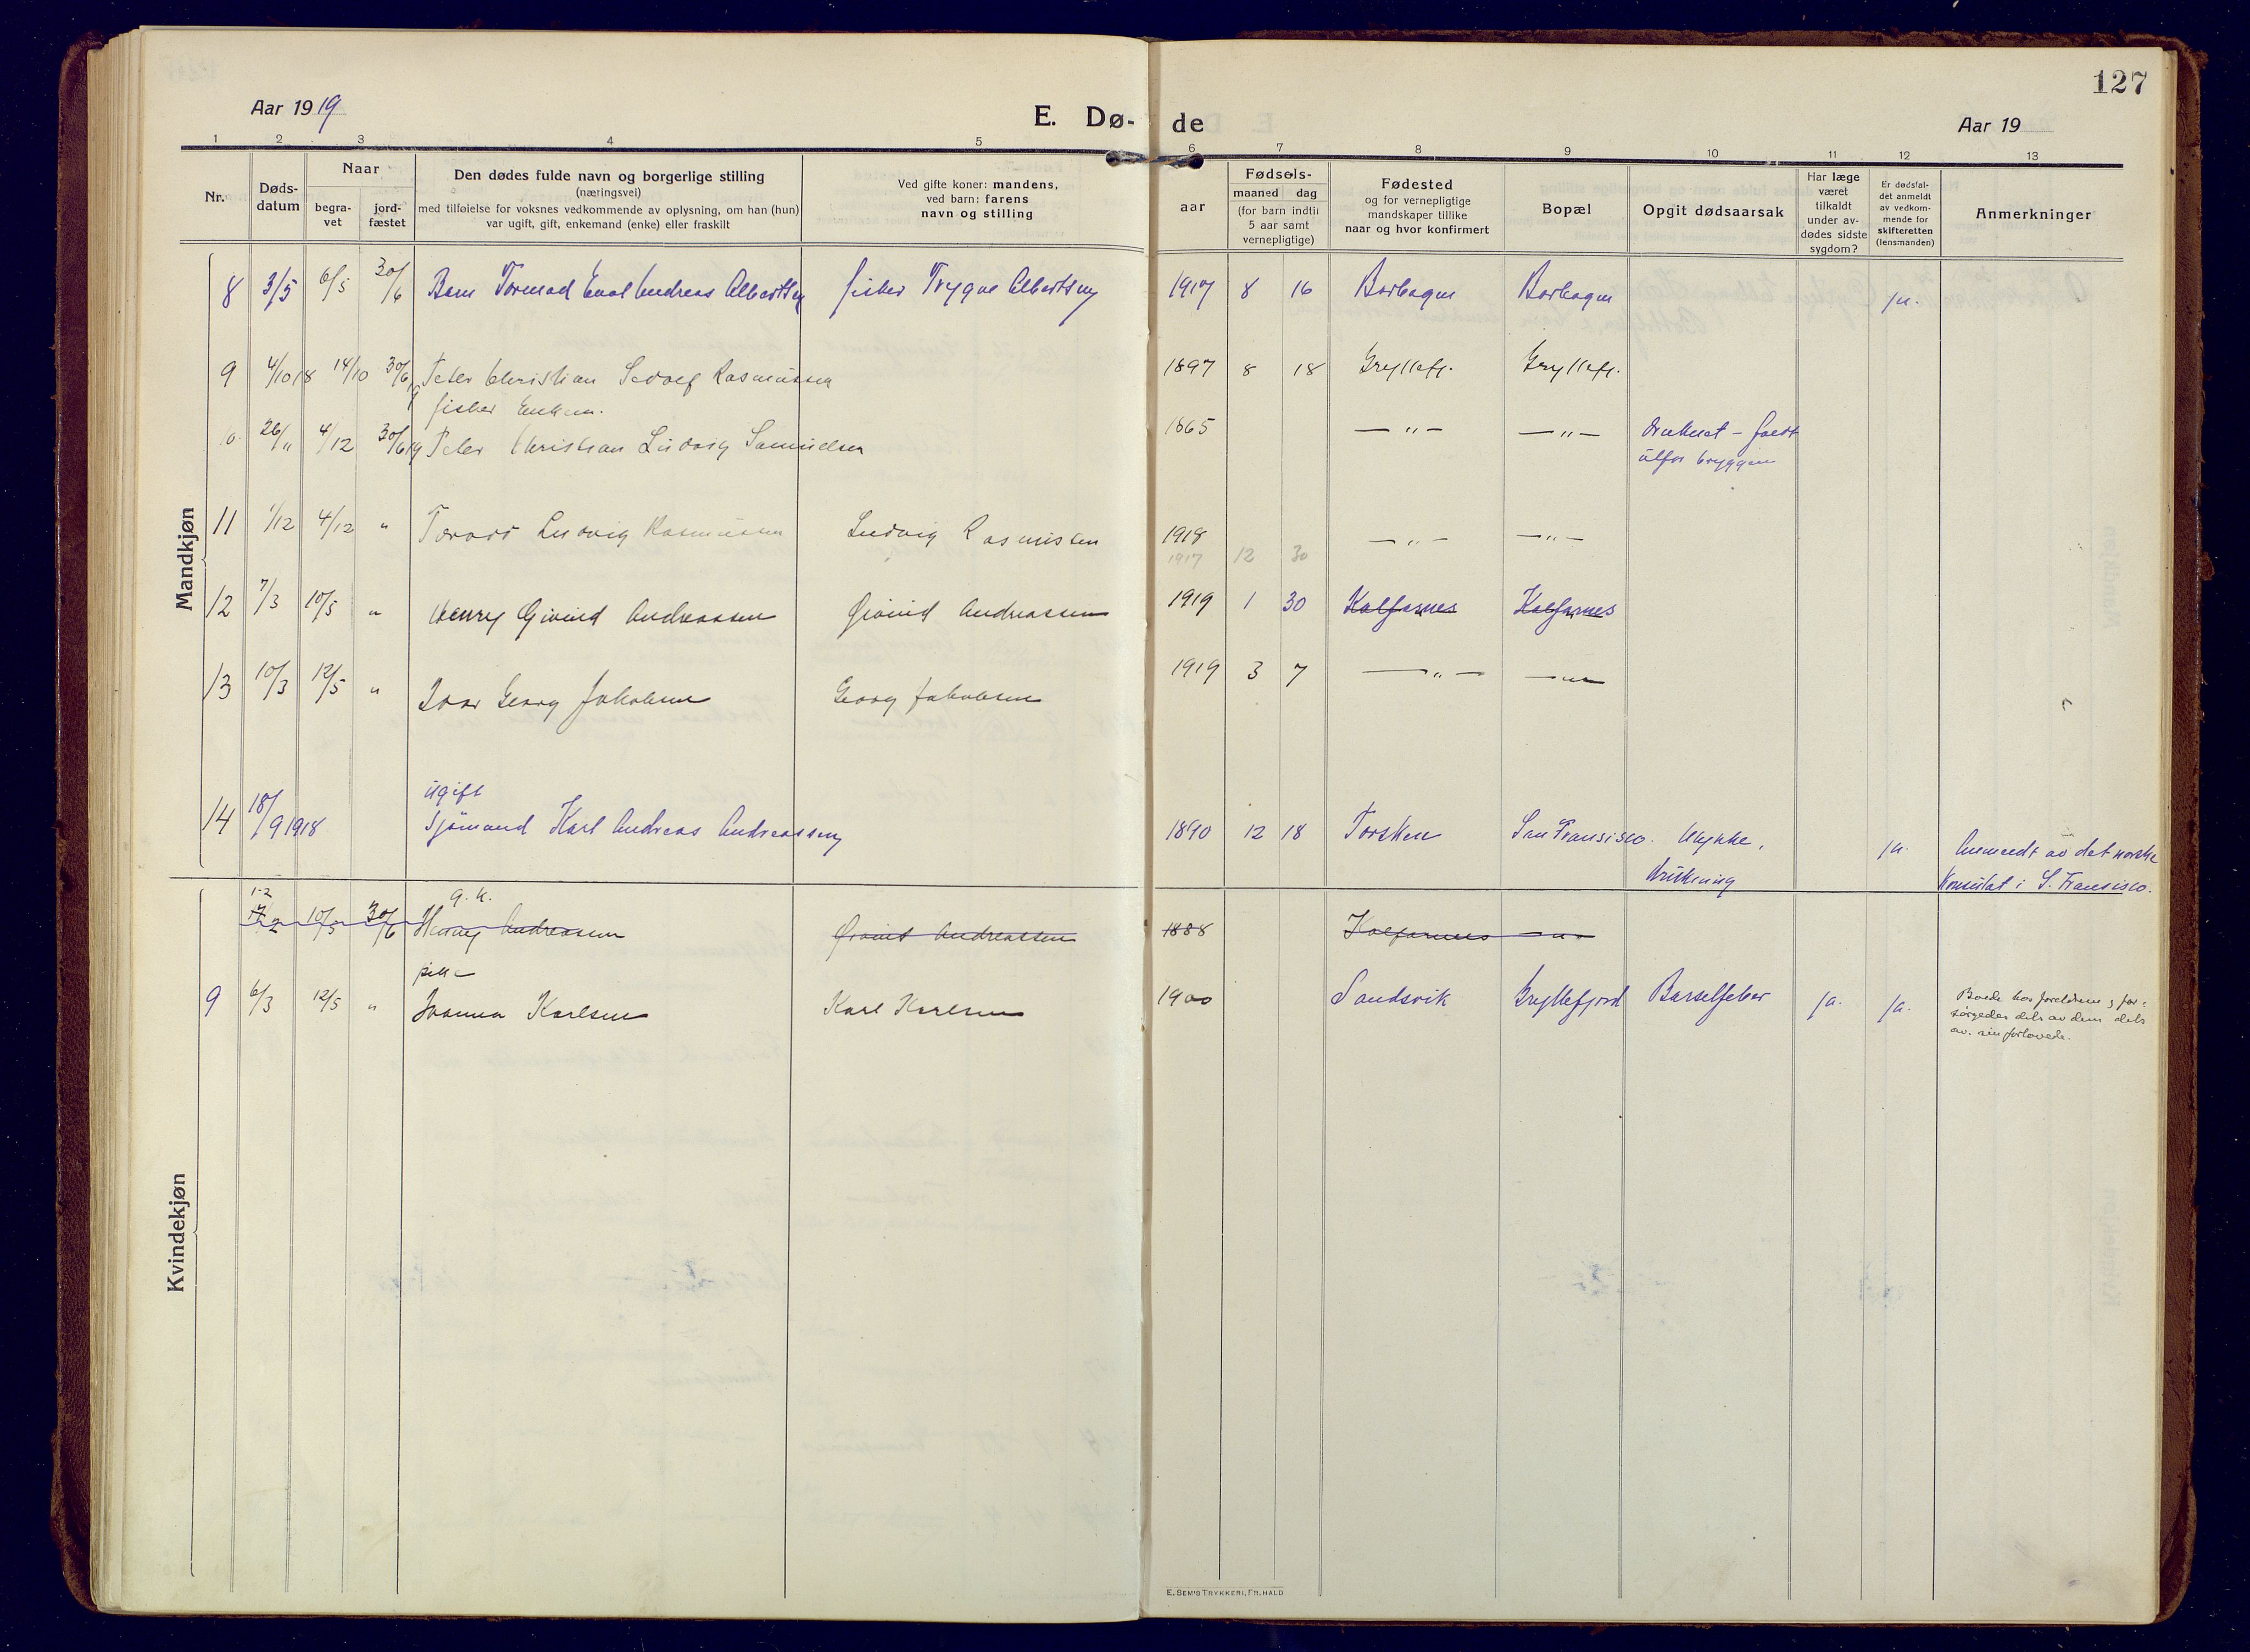 127
Aar 1919
E. Dø- de
Aar 19
1 2 3 4 5 6 7 8 9 10 11 12 13
Nr.
Døds-
datum
Naar
begra-
vet
jord-
fæstet
Den dødes fulde navn og borgerlige stilling
(næringsvei)
med tilføielse for voksnes vedkommende av oplysning, om han (hun)
var ugift, gift, enkemand (enke) eller fraskilt
Ved gifte koner: mandens,
ved barn: farens
navn og stilling
Fødsels-
aar
maaned dag
(for barn indtil
5 aar samt
vernepligtige)
Fødested
og for vernepligtige
mandskaper tillike
naar og hvor konfirmert
Bopæl
Opgit dødsaarsak
Har læge
været
tilkaldt
under av-
dødes sidste
sygdom?
Er dødsfal-
det anmeldt
av vedkom-
mende for
skifteretten
(lensmanden)
Anmerkninger
Mandkjøn
8 3/5 6/5 30/6 Barn Tormod Enol Andreas Albertsen fisker Trygve Albertsen 1917 8 16 Borkagen Borkagen ja.
9 4/10 18 14/10 30/6 19 Peter Christian Sedolf Rasmussen 1897 8 18 Gryllefj. Gryllefj.
fisker Enkem.
10. 26/11 4/12 30/6 19 Peter Christian Ludvig Samuelsen 1865 — " — — " — druknet – faldt
utfor bryggen
11 1/12 4/12 " Torvald Ludvig Rasmussen Ludvig Rasmussen 1918 — " — — " —
1917 12 30
12 7/3 10/5 " Henry Eivind Andreassen Eivind Andreassen 1919 1 30 Kalfarnes Kalfarnes
13 10/3 12/5 " Ivar Georg Jakobsen Georg Jakobsen 1919 3 7 — " — — " —
ugift
14 18/9 1918 Sjømand Karl Andreas Andreassen 1890 12 18 Torsken San Fransisco. Ulykke, ja. Anmeldt av det norske
drukning Konsulat i S. Fransisco.
Kvindekjøn
1-2 g. k.
12 10/5 30/6 Henny Andreassen Eivind Andreassen 1888 Kalfarnes — " —
pike
9 6/3 12/5 " Joanna Karlsen Karl Karlsen 1900 Sandsvik Gryllefjord Barselfeber ja. ja. Boede hos foreldrene, for-
sørgedes dels av dem dels
av sin forlovede.
E. SEM'S TRYKKERI, FR. HALD